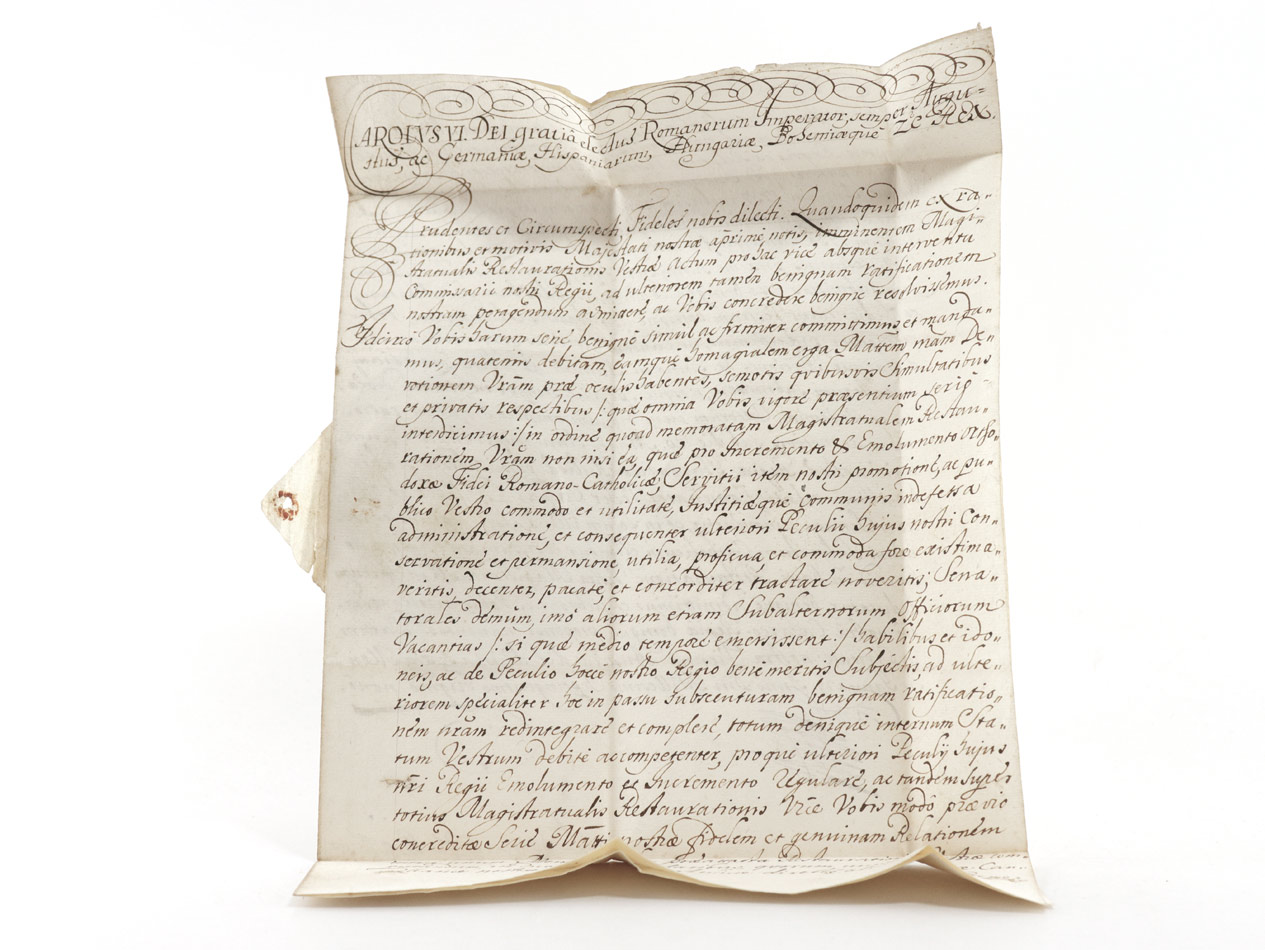 CAROLVS VI. DEI gratiâ electus Romanorum Imperator, semper Augu=
stus, ac Germaniæ, Hispaniarum, Hungariæ, Bohemiæque &c REX.
Prudentes et Circumspecti, Fideles nobis dilecti. Quandoquidem ex ra=
tionibus et motivis Majestati nostræ aprimè notis, imminentem Magi=
stratualis Restaurationis Vestræ Actum pro hac vice absque interventu
Commissarii nostri Regii, ad ulteriorem tamen benignam ratificationem
nostram peragendum admittere, ac Vobis concredere benignè resolvissemus.
Idcirco Vobis harum serie benignè simul ac firmiter committimus et manda=
mus, quatenus debitam, eamque homagialem erga Mattem nram De=
votionem Vram præ oculis habentes, semotis quibusvis Simultatibus
et privatis respectibus /: quæ omnia Vobis vigore præsentium seriò
interdicimus :/ in ordine quoad memoratam Magistratualem Restau=
rationem Vram non nisi ea, quæ pro Incremento & Emolumento ortho=
doxæ Fidei Romano-Catholicæ, Servitii item nostri promotione, ac pu=
blico Vestro commodo et utilitate, Justitiæque Communis indefessa
administratione, et consequenter ulteriori Peculii hujus nostri Con=
servatione et permansione, utilia, proficua, et commoda fore existima=
veritis, decenter, pacatè, et concorditer tractare noveritis; Sena=
torales demùm, imò aliorum etiam Subalternorum Officiorum
Vacantias /: si quæ medio tempore emersissent :/ habilibus et ido=
neis, ac de Peculio hocce nostro Regio benemeritis Subjectis, ad ulte=
riorem specialiter hoc in passu subsecuturam benignam ratificatio=
nem nram redintegrare et complere, totum denique internum Sta=
tum Vestrum debitè ac competenter, proque ulteriori Peculij hujus
nri Regii Emolumento et Incremento Regulare, ac tandem super
totius Magistratualis Restaurationis Vræ Vobis modò prævio
concreditæ Serie Matti nostræ fidelem et genuinam Relationem